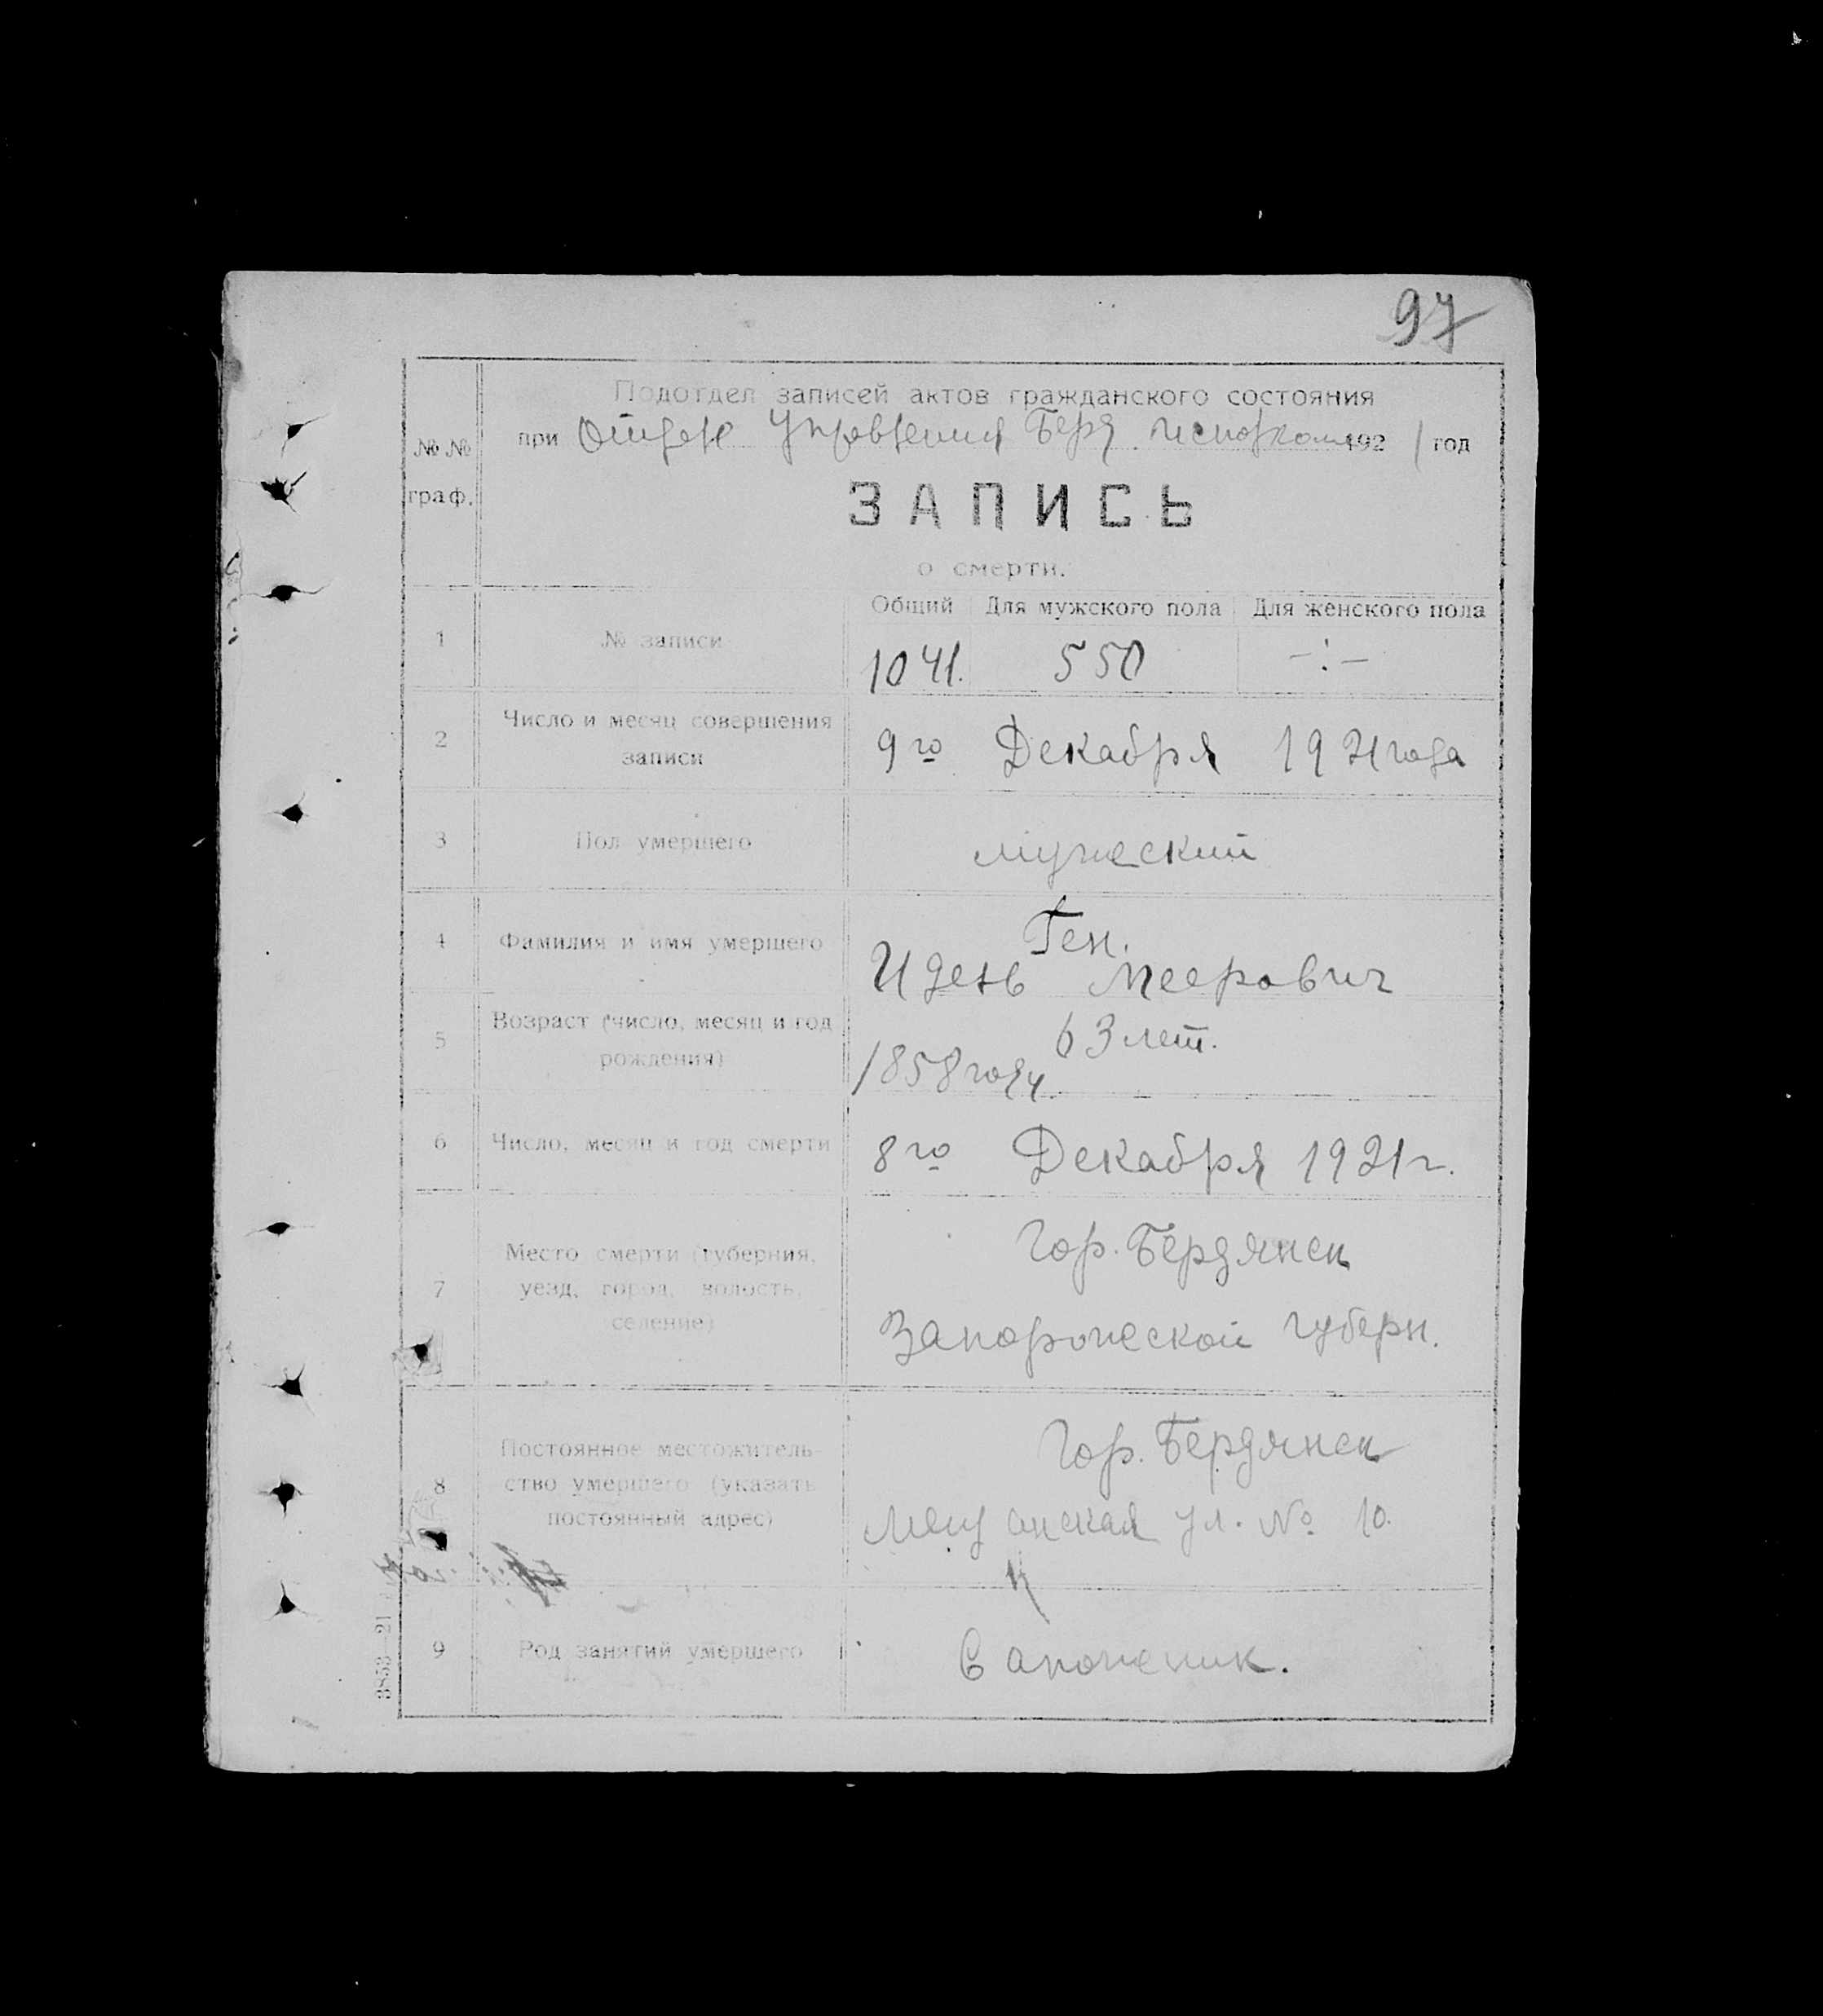 97
Подотдел записей актов гражданского состояния
при Отделе Управления Берд. исполкома 1921 год
№ № граф.
ЗАПИСЬ
о смерти.
Общий Для мужского пола Для женского пола
1 № записи 1041. 550 -:-
2 Число и месяц совершения записи 9го Декабря 1921 года
3 Пол умершего мужеский
4 Фамилия и имя умершего Ген.
Идель Меерович
5 Возраст (число, месяц и год рождения) 63 лет.
1858 году.
6 Число, месяц и год смерти 8го Декабря 1921 г.
7 Место смерти (губерния, уезд, город, волость, селение) Гор. Бердянск
Запорожеской губерн.
8 Постоянное местожительство умершего (указать постоянный адрес) Гор. Бердянск
Мещанская ул. № 10.
9 Род занятий умершего Сапожник.
3853—21